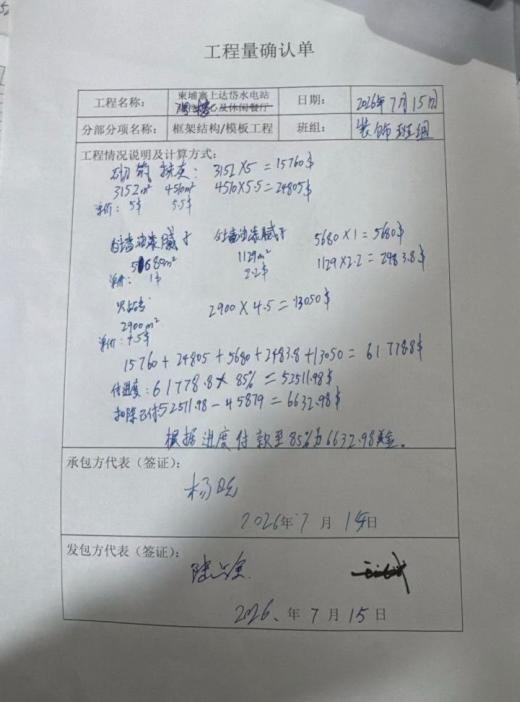 工程量确认单
工程名称： 柬埔寨上达岱水电站 日期： 2026年7月15日
及休闲餐厅
分部分项名称： 框架结构/模板工程 班组： 装饰班组
工程情况说明及计算方式：
砌筑 抹灰： 3152×5=15760$
3152m² 4510m² 4510×5.5=24805$
单价：5$ 5.5$
内墙油漆腻子 外墙油漆腻子 5680×1=5680$
5680m² 1129m² 1129×2.2=2483.8$
单价：1$ 2.2$
2900×4.5=13050$
2900m²
单价：4.5$
15760+24805+5680+2483.8+13050=61778.8$
付进度：61778.8×85%=52511.98$
扣除已付52511.98-45879=6632.98$
根据进度付款至85%为6632.98美金。
承包方代表（签证）：
杨
2026年7月15日
发包方代表（签证）：
陆
2026.年7月15日